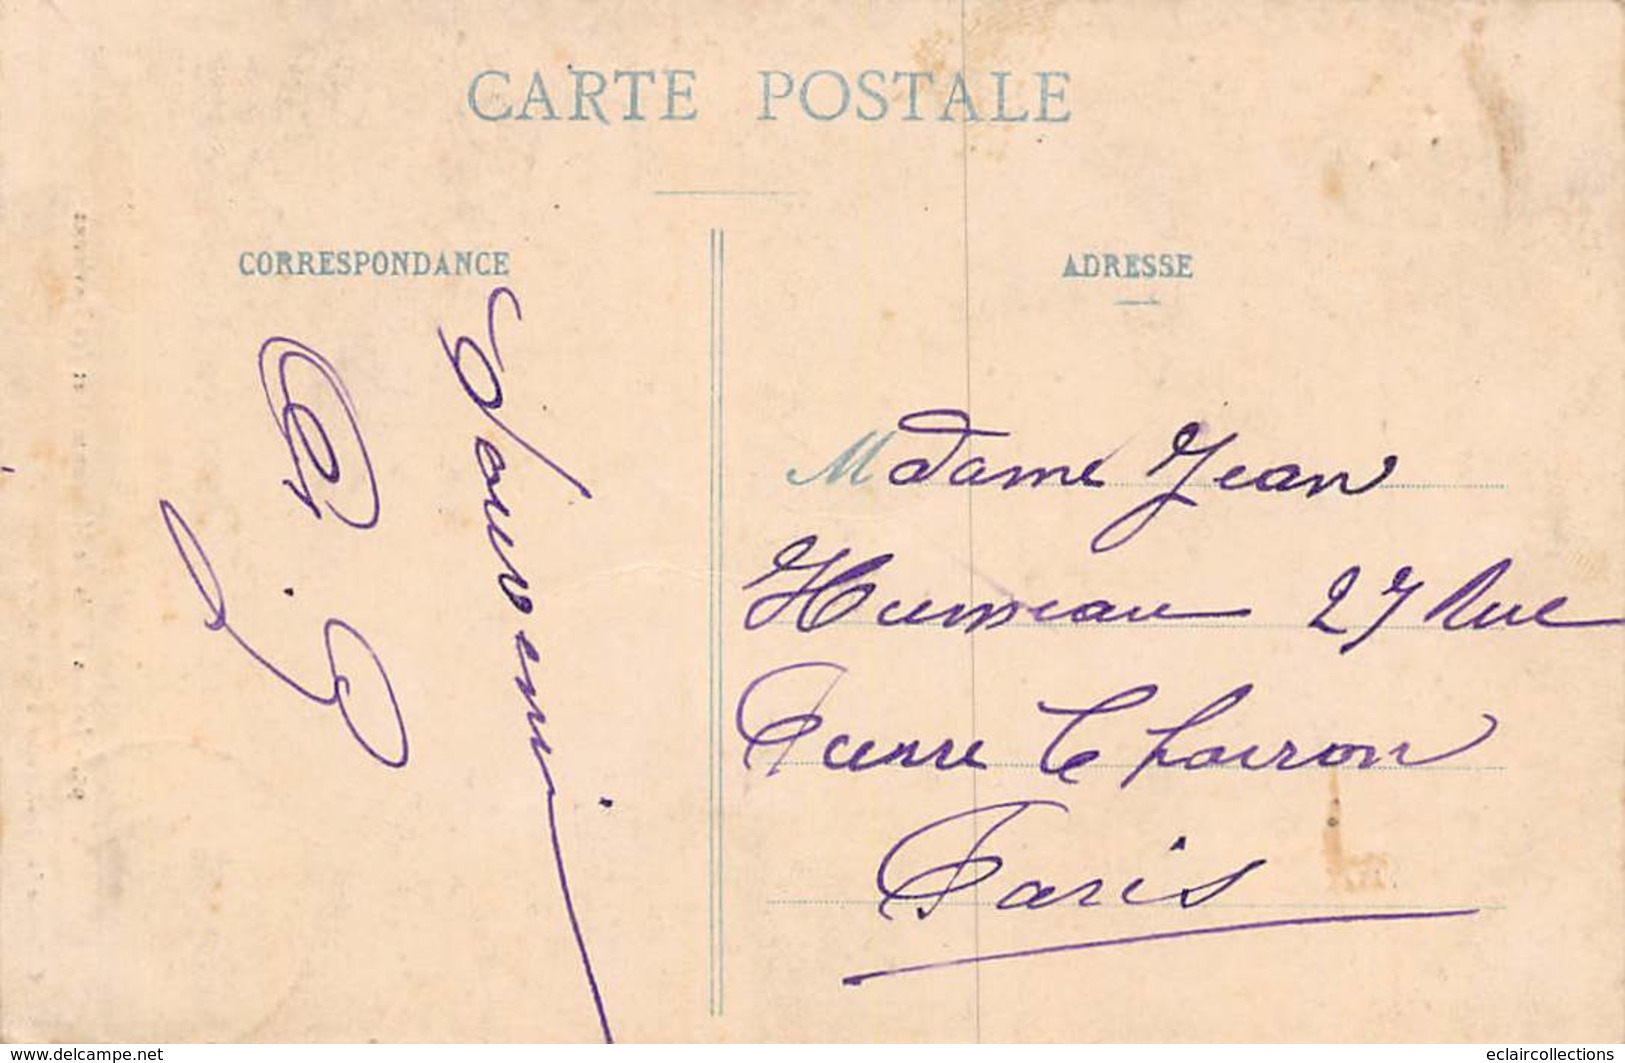 CARTE POSTALE
CORRESPONDANCE
ADRESSE
Souvenir
Madame Jean
Humeau 27 Rue
Pierre Charron
Paris
www.delcampe.net
eclaircollections